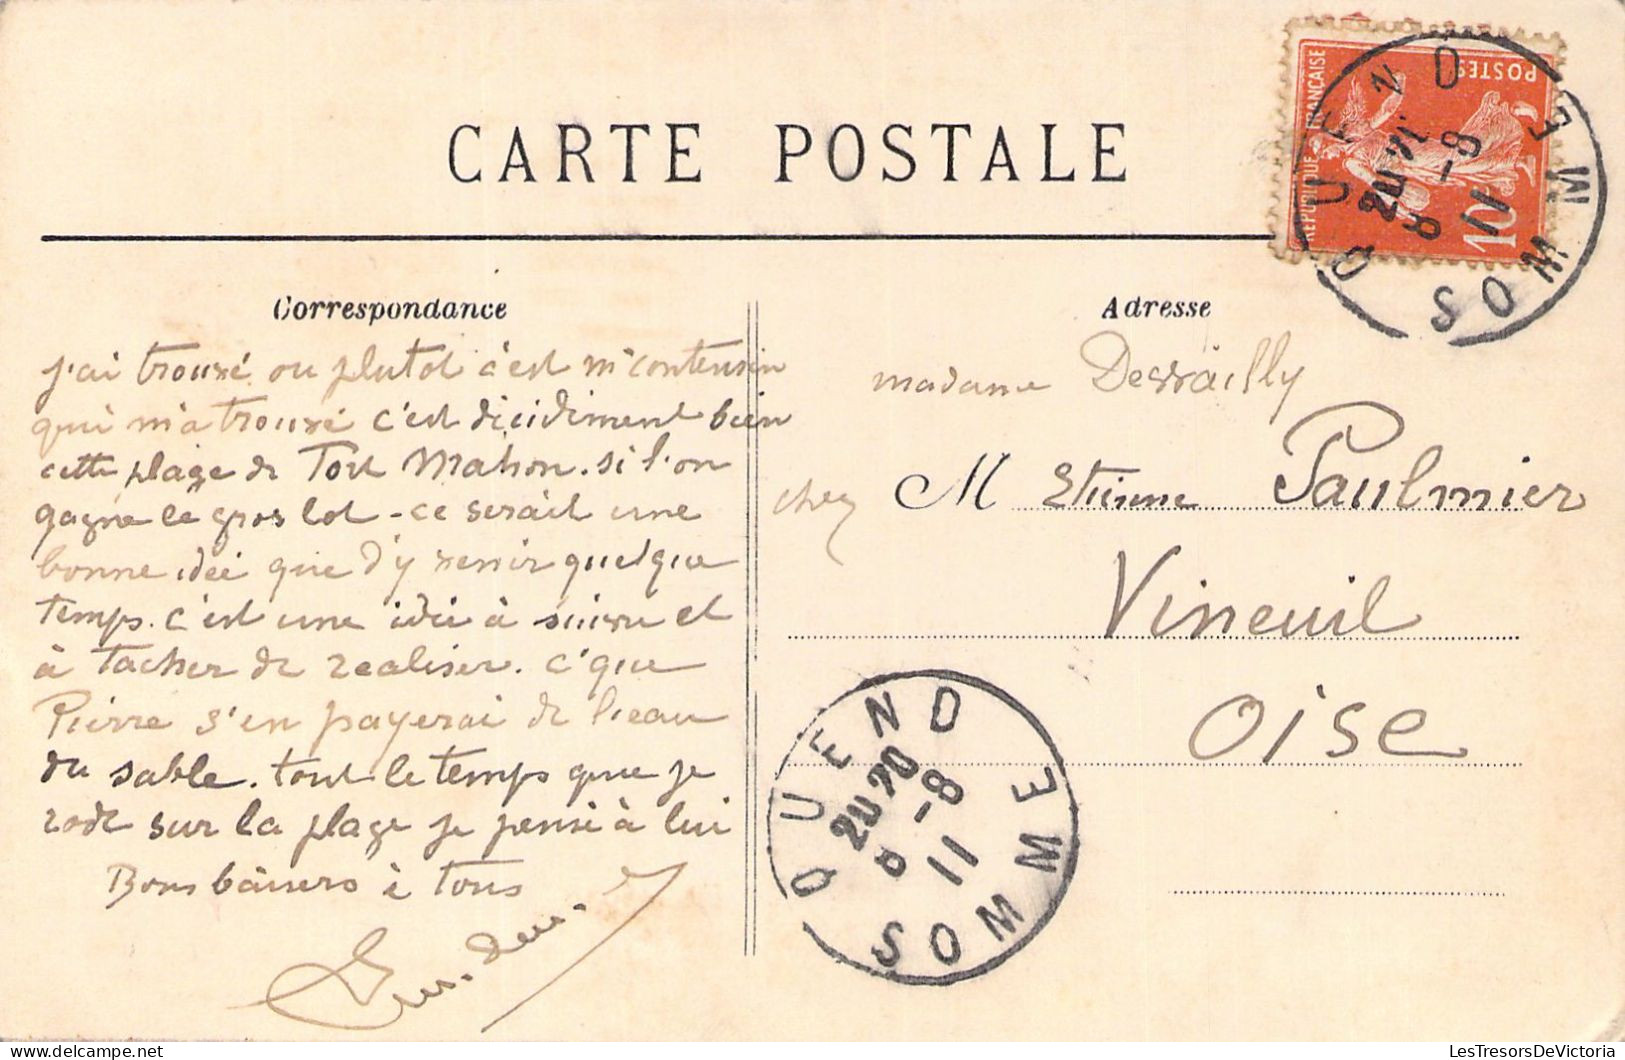 CARTE POSTALE
Correspondance
Adresse
RÉPUBLIQUE FRANÇAISE
POSTES
10
QUEND
SOMME
8 -8
11
j'ai trouvé ou plutot c'est
qui m'a trouvé c'est dicidiment bien
cette plage de Fort Mahon. si l'on
gagne le gros lot - ce serait une
bonne idée que d'y venir quelque
temps. c'est une idée à suivre et
à tacher de realiser. c'que
Pierre s'en payerai de l'eau
du sable. tout le temps que je
rode sur la plage je pense à lui
Bons baisers à tous
madame
chez M Etienne Paulmier
Vineuil
Oise
QUEND
SOMME
20
8 -8
11
LesTresorsDeVictoria
delcampe.net